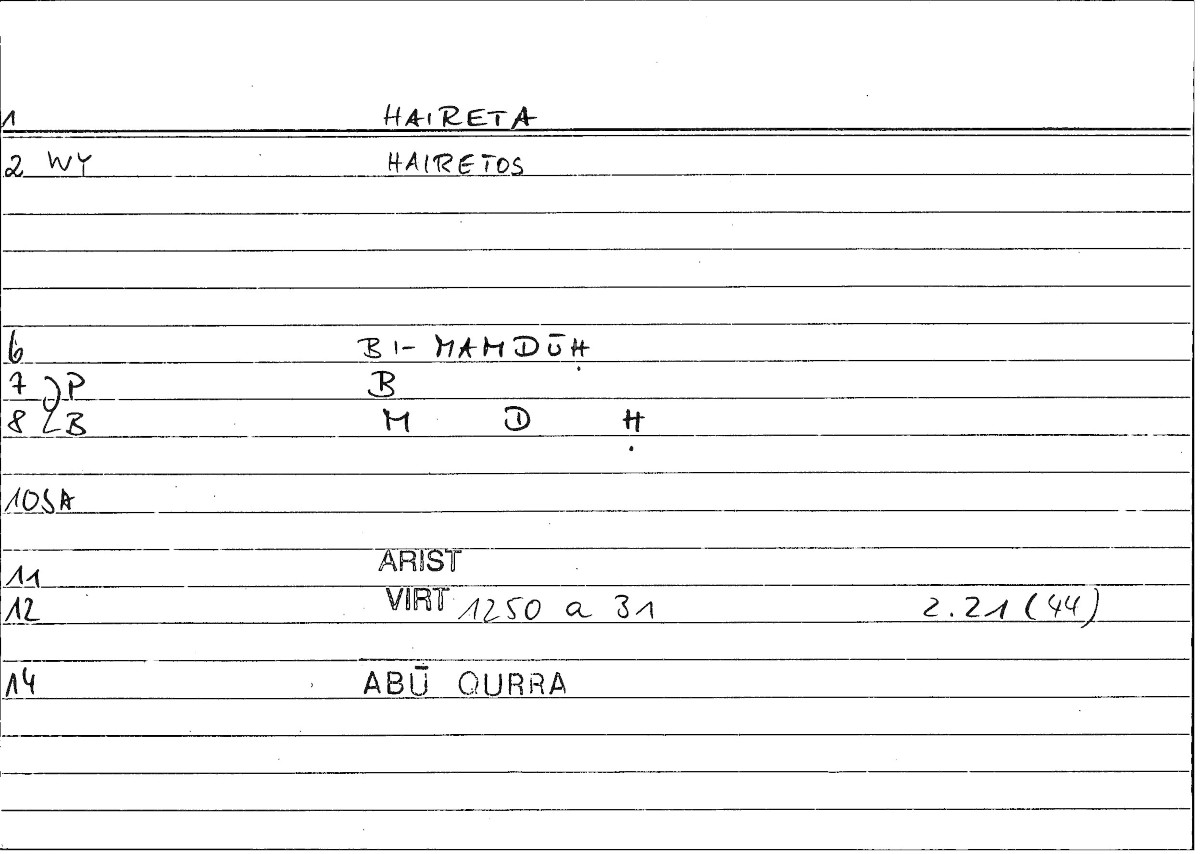 1 HAIRETA
2 WY HAIRETOS
6 BI- MAMDŪḤ
7 P B
8 B M D Ḥ
10SA
11 ARIST
12 VIRT 1250 a 31 2.21 (44)
14 ABŪ QURRA